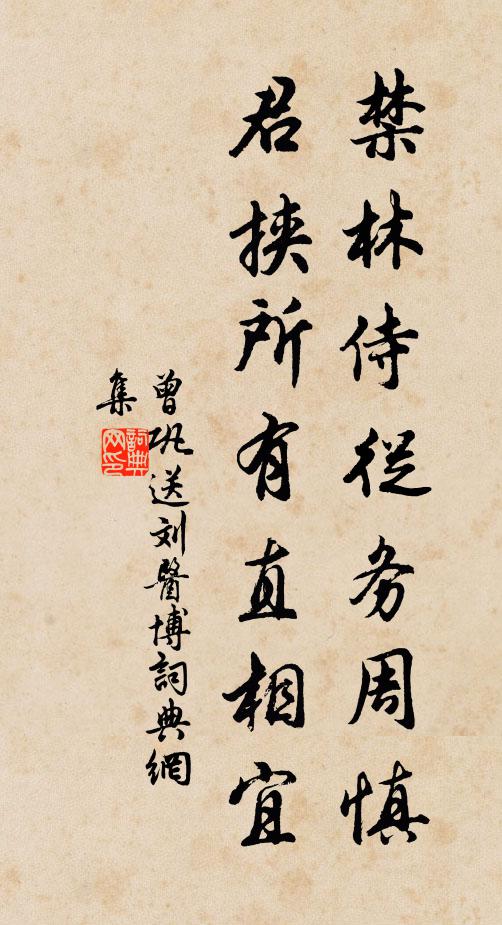 禁林侍從务周慎
君挟所有直相宜
曾巩送刘醫博詞典網
集
詞典
网印